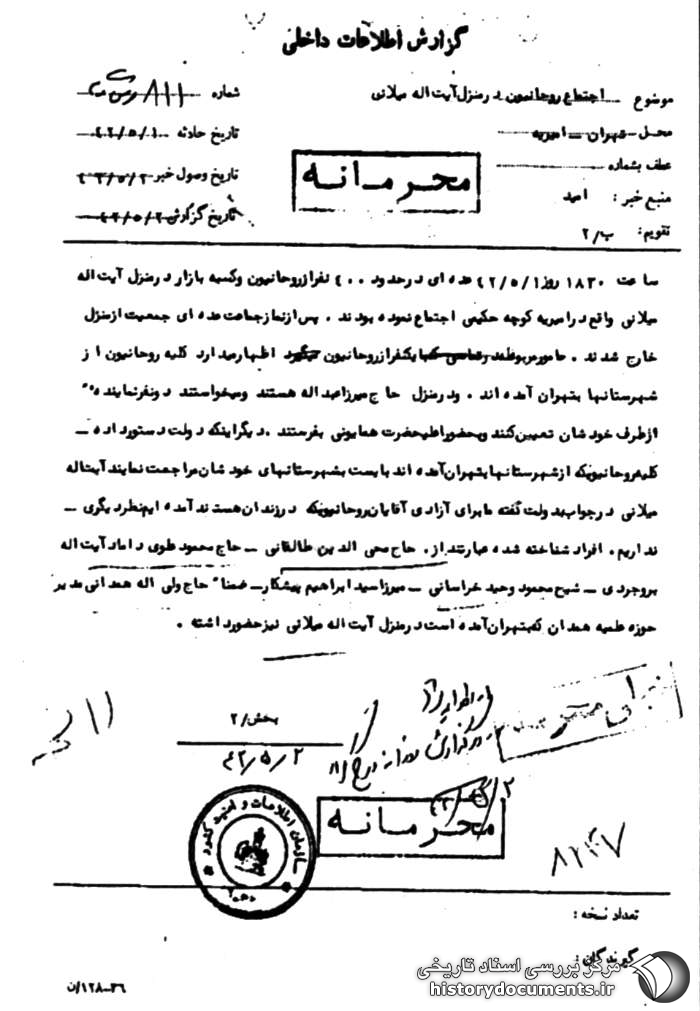 گزارش اطلاعات داخلی
موضوع اجتماع روحانیون در منزل آیت اله میلانی
شماره ۸۱۱
محل تهران ــ امیریه
تاریخ حادثه ۴۲/۵/۱
عطف بشماره
تاریخ وصول خبر ۴۲/۵/۲
محرمانه
منبع خبر : امید
تاریخ گزارش ۴۲/۵/۲
تقویم: ب/۲
ساعت ۱۸۳۰ روز ۴۲/۵/۱ عده ای در حدود ۴۰۰ نفر از روحانیون و کسبه بازار در منزل آیت اله
میلانی واقع در امیریه کوچه حکیمی اجتماع نموده بودند . پس از نماز جماعت عده ای جمعیت از منزل
خارج شدند . مامور مربوطه یکنفر از روحانیون اظهار میدارد کلیه روحانیون از
شهرستانها بتهران آمده اند . و در منزل حاج میرزا عبداله هستند و میخواستند دو نفر نماینده
از طرف خودشان تعیین کنند و بحضور اعلیحضرت همایونی بفرستند . دیگر اینکه دولت دستور داده ــ
کلیه روحانیونیکه از شهرستانها بتهران آمده اند بایست بشهرستانهای خودشان مراجعت نمایند آیت اله
میلانی در جواب بدولت گفته ما برای آزادی آقایان روحانیونیکه در زندان هستند آمده ایم نظر دیگری ــ
نداریم . افراد شناخته شده عبارتند از . حاج محی الدین طالقانی ــ حاج محمود علوی داماد آیت اله
بروجردی ــ شیخ محمود وحید خراسانی ــ میرزا سید ابراهیم پیشکار ــ ضمنا" حاج ولی اله همدانی مدیر
حوزه علمیه همدان که بتهران آمده است در منزل آیت اله میلانی نیز حضور داشته .
بخش/۲
در گزارش روزانه درج
۴۲/۵/۲
۸۱۱
محرمانه
سازمان اطلاعات و امنیت کشور
تعداد نسخه :
گیرندگان :
۱۲۸-۳۶/ن
مرکز بررسی اسناد تاریخی
historydocuments.ir